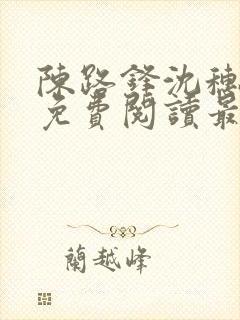 陳路鋒沈穗
免費閱讀最
蘭越峰